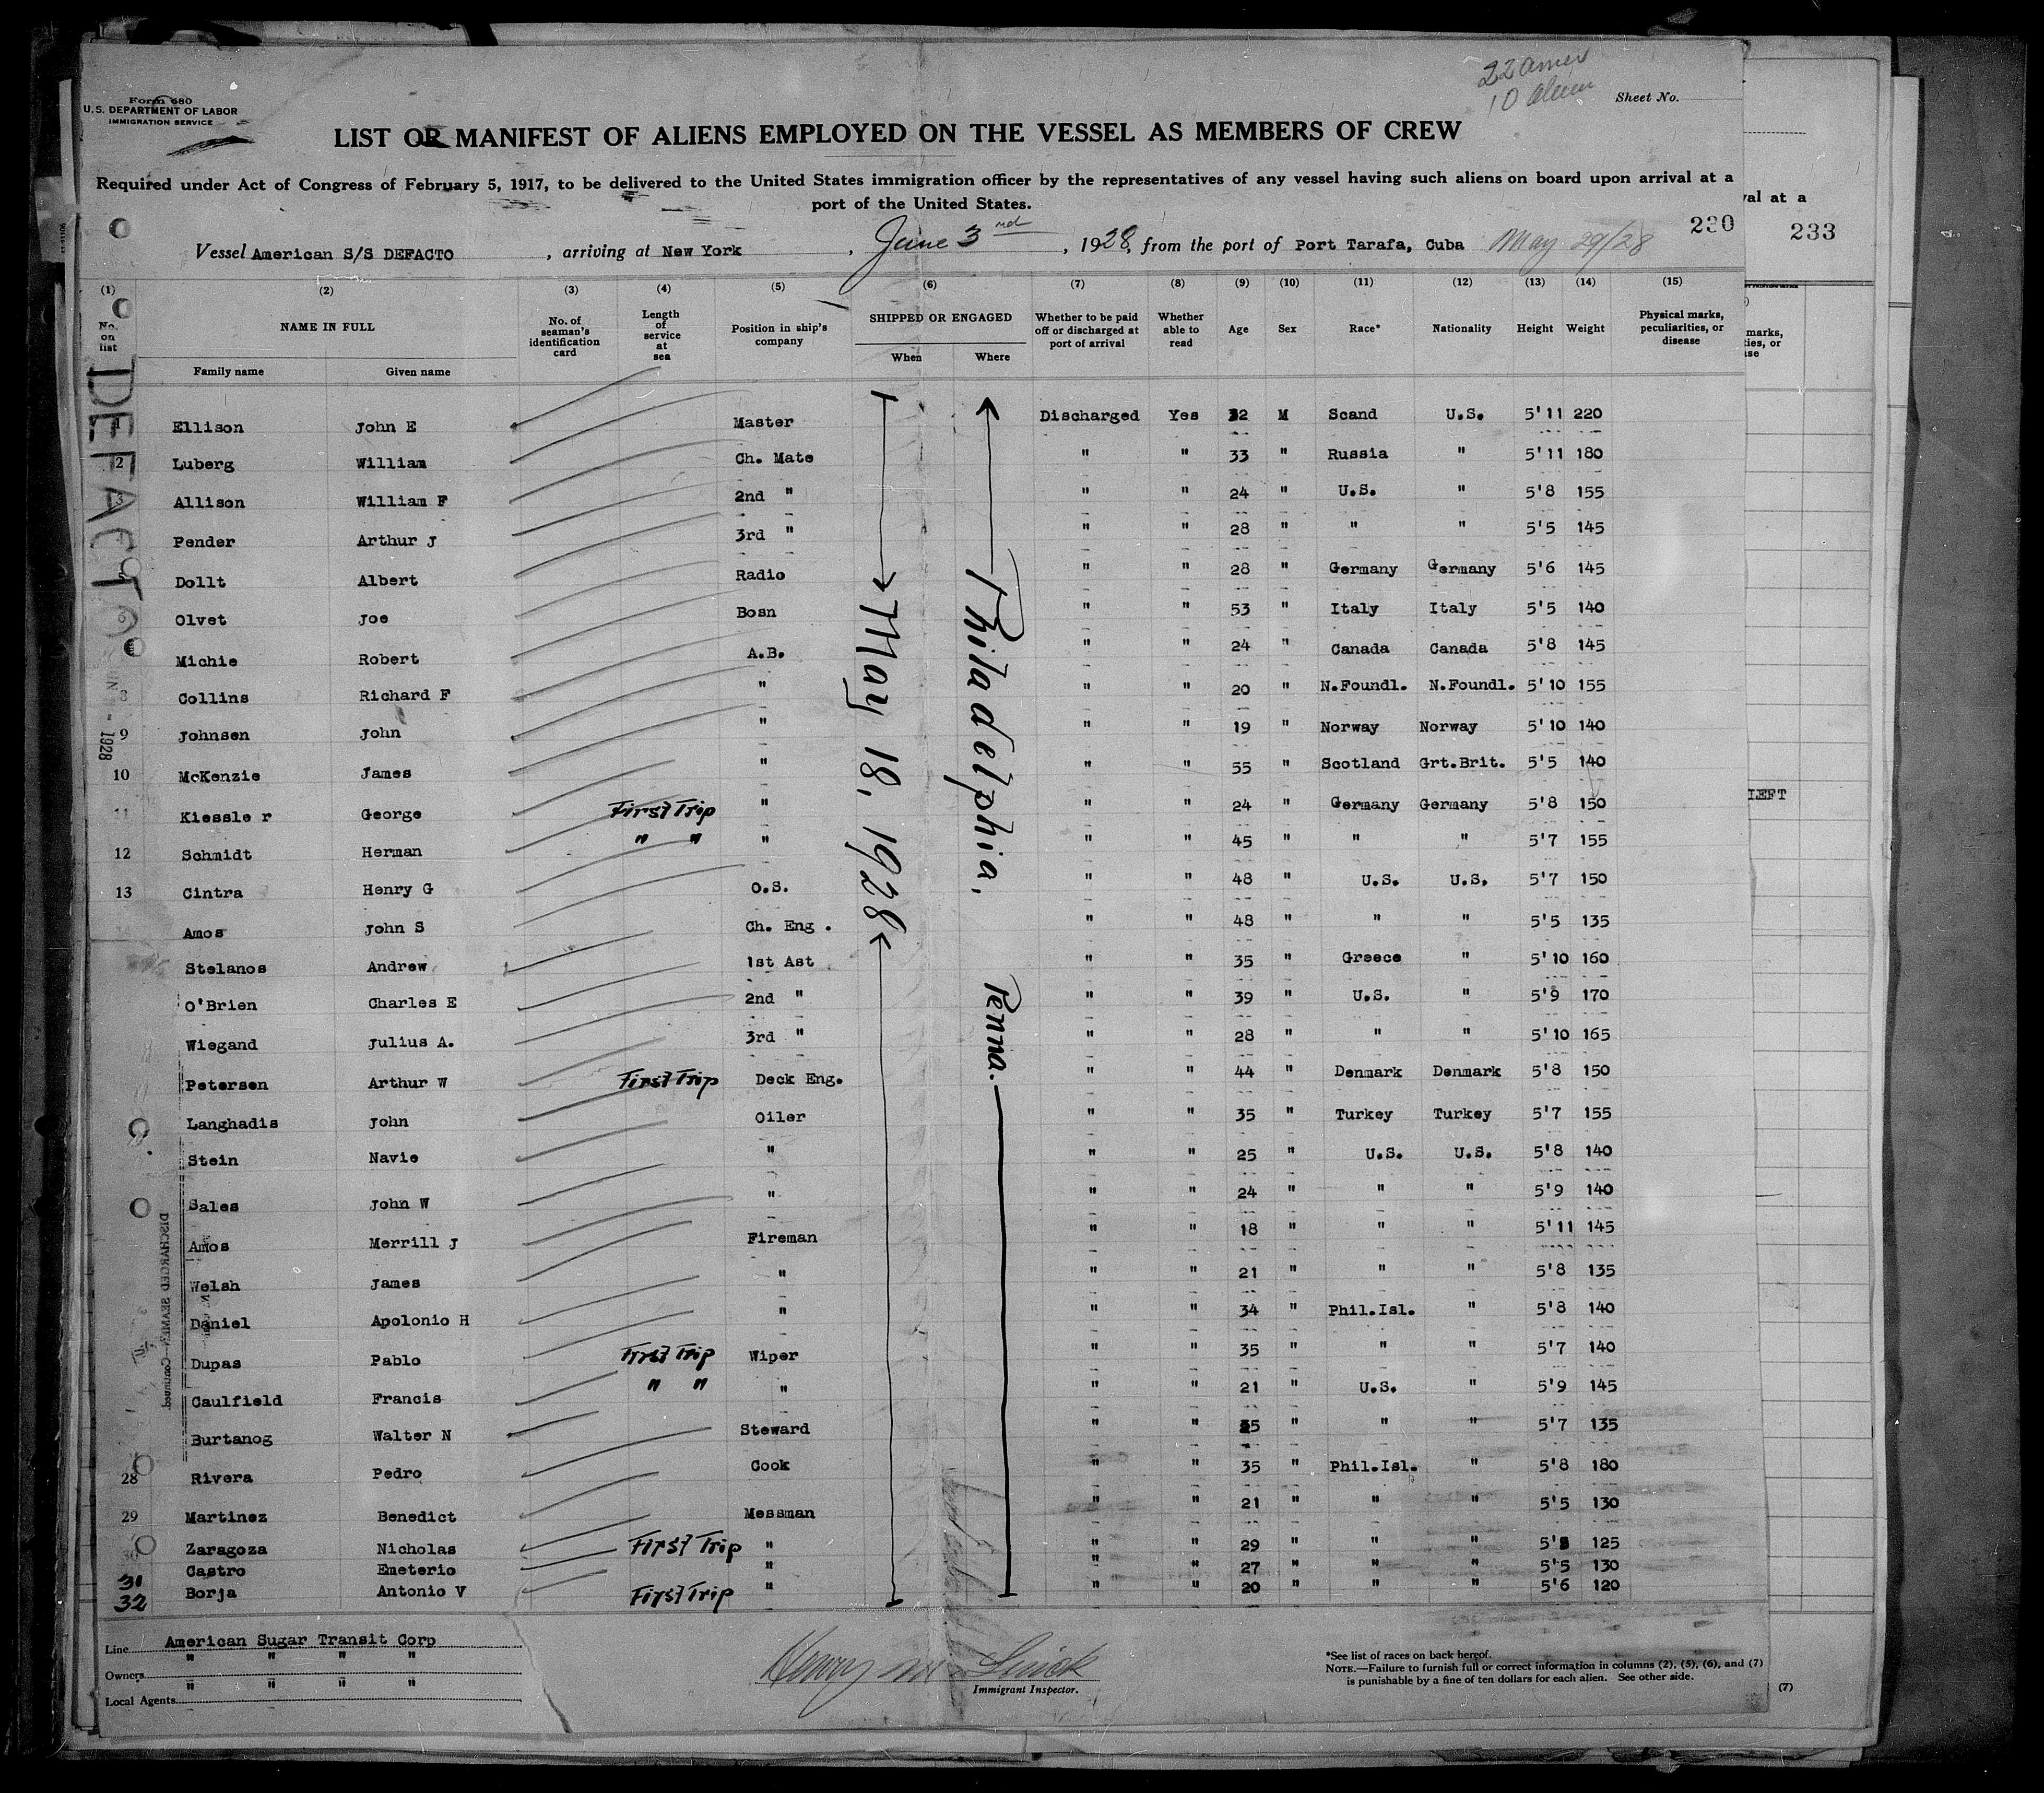 22 Amer
10 Alien
Form 680
U.S. DEPARTMENT OF LABOR
IMMIGRATION SERVICE
Sheet No.
LIST OR MANIFEST OF ALIENS EMPLOYED ON THE VESSEL AS MEMBERS OF CREW
Required under Act of Congress of February 5, 1917, to be delivered to the United States immigration officer by the representatives of any vessel having such aliens on board upon arrival at a
port of the United States.
val at a
230
233
Vessel American S/S DEFACTO , arriving at New York , June 3rd , 1928, from the port of Port Tarafa, Cuba May 29/28
(1) (2) (3) (4) (5) (6) (7) (8) (9) (10) (11) (12) (13) (14) (15)
No. on list NAME IN FULL No. of seaman's identification card Length of service at sea Position in ship's company SHIPPED OR ENGAGED Whether to be paid off or discharged at port of arrival Whether able to read Age Sex Race* Nationality Height Weight Physical marks, peculiarities, or disease
Family name Given name When Where
marks,
ties, or
ase
DEFACTO
May 18, 1928
Philadelphia, Penna.
1 Ellison John E Master Discharged Yes 32 M Scand U.S. 5'11 220
2 Luberg William Ch. Mate " " 33 " Russia " 5'11 180
3 Allison William F 2nd " " " 24 " U.S. " 5'8 155
4 Pender Arthur J 3rd " " " 28 " " " 5'5 145
5 Dollt Albert Radio " " 28 " Germany Germany 5'6 145
6 Olvet Joe Bosn " " 53 " Italy Italy 5'5 140
Michie Robert A.B. " " 24 " Canada Canada 5'8 145
8 Collins Richard F " " " 20 " N.Foundl. N.Foundl. 5'10 155
9 Johnsen John " " " 19 " Norway Norway 5'10 140
1928
10 McKenzie James " " " 55 " Scotland Grt.Brit. 5'5 140
11 Kiessle r George First Trip " " " 24 " Germany Germany 5'8 150
LEFT
12 Schmidt Herman " " " " " 45 " " " 5'7 155
13 Cintra Henry G O.S. " " 48 " U.S. U.S. 5'7 150
Amos John S Ch. Eng . " " 48 " " " 5'5 135
Stelanos Andrew 1st Ast " " 35 " Greece " 5'10 160
O'Brien Charles E 2nd " " " 39 " U.S. " 5'9 170
Wiegand Julius A. 3rd " " " 28 " " " 5'10 165
Petersen Arthur W First Trip Deck Eng. " " 44 " Denmark Denmark 5'8 150
Langhadis John Oiler " " 35 " Turkey Turkey 5'7 155
Stein Navie " " " 25 " U.S. U.S. 5'8 140
Sales John W " " " 24 " " " 5'9 140
Amos Merrill J Fireman " " 18 " " " 5'11 145
Welsh James " " " 21 " " " 5'8 135
Daniel Apolonio H " " " 34 " Phil.Isl. " 5'8 140
Dupas Pablo First Trip Wiper " " 35 " " " 5'7 140
Caulfield Francis " " " " " 21 " U.S. " 5'9 145
Burtanog Walter N Steward " " 35 " " " 5'7 135
28 Rivera Pedro Cook " " 35 " Phil.Isl. " 5'8 180
29 Martinez Benedict Messman " " 21 " " " 5'5 130
30 Zaragoza Nicholas First Trip " " " 29 " " " 125
31 Castro Emeterio " " " 27 " " " 5'5 130
32 Borja Antonio V First Trip " " " 20 " " " 5'6 120
DISCHARGED SEAMEN—Continued.
Line American Sugar Transit Corp
Owners " " " "
Local Agents " " " "
Henry
Immigrant Inspector.
*See list of races on back hereof.
NOTE.—Failure to furnish full or correct information in columns (2), (5), (6), and (7)
is punishable by a fine of ten dollars for each alien. See other side.
(7)